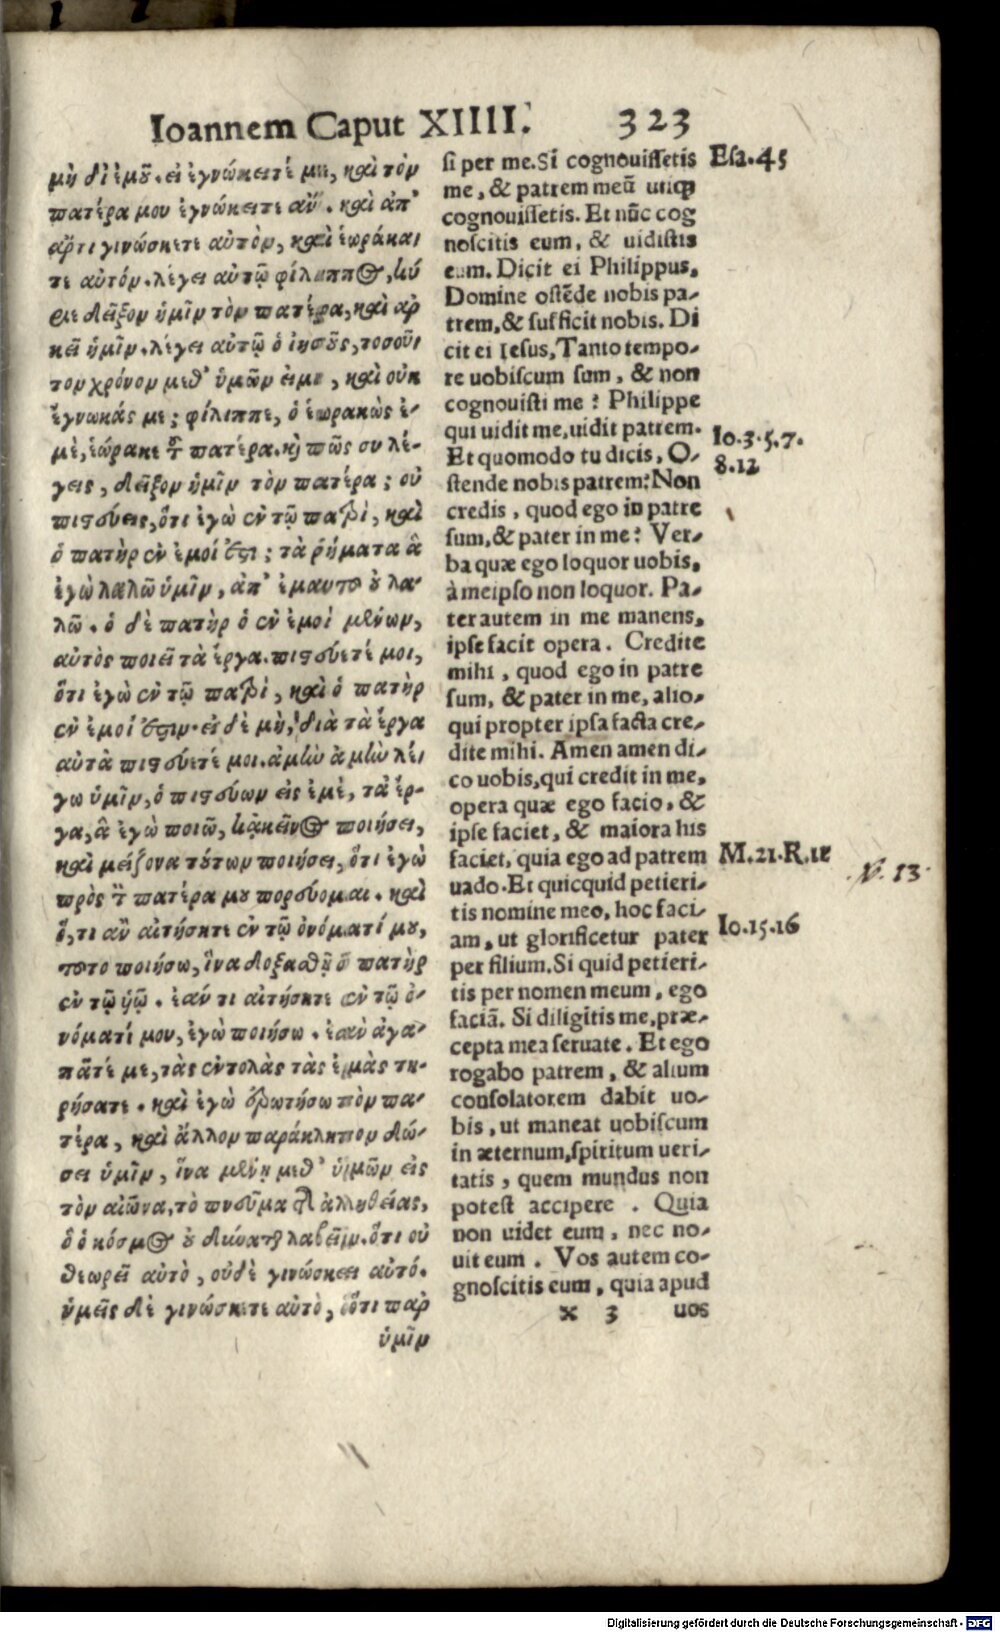 Ioannem Caput XIIII. 323
μὴ δι ἐμοῦ. εἰ ἐγνώκειτέ με, καὶ τὸν
πατέρα μου ἐγνώκειτε ἄν. καὶ ἀπ'
ἄρτι γινώσκετε αὐτὸν, καὶ ἑωράκα
τε αὐτόν. λέγει αὐτῷ φίλιππος, κύ
ριε δεῖξον ἡμῖν τὸν πατέρα, καὶ ἀρ
κεῖ ἡμῖν. λέγει αὐτῷ ὁ ἰησοῦς, τοσοῦ
τον χρόνον μεθ' ὑμῶν εἰμι, καὶ οὐκ
ἔγνωκάς με; φίλιππε, ὁ ἑωρακὼς ἐ-
μὲ, ἑώρακε τὸν πατέρα. καὶ πῶς συ λέ-
γεις, δεῖξον ἡμῖν τὸν πατέρα; οὐ
πιστεύεις, ὅτι ἐγὼ ἐν τῷ πατρὶ, καὶ
ὁ πατὴρ ἐν ἐμοί ἐστι; τὰ ῥήματα ἃ
ἐγὼ λαλῶ ὑμῖν, ἀπ' ἐμαυτοῦ οὐ λα-
λῶ. ὁ δὲ πατὴρ ὁ ἐν ἐμοὶ μένων,
αὐτὸς ποιεῖ τὰ ἔργα. πιστεύετέ μοι,
ὅτι ἐγὼ ἐν τῷ πατρὶ, καὶ ὁ πατὴρ
ἐν ἐμοί ἐστιν. εἰ δὲ μὴ, διὰ τὰ ἔργα
αὐτὰ πιστεύετέ μοι. ἀμὴν ἀμὴν λέ
γω ὑμῖν, ὁ πιστεύων εἰς ἐμὲ, τὰ ἔρ-
γα, ἃ ἐγὼ ποιῶ, κἀκεῖνος ποιήσει,
καὶ μείζονα τούτων ποιήσει, ὅτι ἐγὼ
πρὸς τὸν πατέρα μου πορεύομαι. καὶ
ὅ, τι ἂν αἰτήσητε ἐν τῷ ὀνόματί μου,
τοῦτο ποιήσω, ἵνα δοξασθῇ ὁ πατὴρ
ἐν τῷ ὑῷ. ἐάν τι αἰτήσητε ἐν τῷ ὀ-
νόματί μου, ἐγὼ ποιήσω. ἐὰν ἀγα-
πᾶτέ με, τὰς ἐντολὰς τὰς ἐμὰς τη-
ρήσατε. καὶ ἐγὼ ἐρωτήσω τὸν πα-
τέρα, καὶ ἄλλον παράκλητον δώ-
σει ὑμῖν, ἵνα μένῃ μεθ' ὑμῶν εἰς
τὸν αἰῶνα, τὸ πνεῦμα τῆς ἀληθείας,
ὃ ὁ κόσμος οὐ δύναται λαβεῖν. ὅτι οὐ
θεωρεῖ αὐτὸ, οὐδὲ γινώσκει αὐτό.
ὑμεῖς δὲ γινώσκετε αὐτὸ, ὅτι παρ
ὑμῖν
si per me. Si cognouissetis
me, & patrem meũ utiq;
cognouissetis. Et nũc cog
noscitis eum, & uidistis
eum. Dicit ei Philippus,
Domine ostẽde nobis pa-
trem, & sufficit nobis. Di
cit ei Iesus, Tanto tempo-
re uobiscum sum, & non
cognouisti me? Philippe
qui uidit me, uidit patrem.
Et quomodo tu dicis, O-
stende nobis patrem? Non
credis, quod ego in patre
sum, & pater in me? Ver-
ba quæ ego loquor uobis,
à meipso non loquor. Pa-
ter autem in me manens,
ipse facit opera. Credite
mihi, quod ego in patre
sum, & pater in me, alio-
qui propter ipsa facta cre-
dite mihi. Amen amen di-
co uobis, qui credit in me,
opera quæ ego facio, &
ipse faciet, & maiora his
faciet, quia ego ad patrem
uado. Et quicquid petieri-
tis nomine meo, hoc faci-
am, ut glorificetur pater
per filium. Si quid petieri-
tis per nomen meum, ego
faciã. Si diligitis me, præ-
cepta mea seruate. Et ego
rogabo patrem, & alium
consolatorem dabit uo-
bis, ut maneat uobiscum
in æternum, spiritum ueri-
tatis, quem mundus non
potest accipere. Quia
non uidet eum, nec no-
uit eum. Vos autem co-
gnoscitis eum, quia apud
x 3 uos
Esa. 45
Io. 3. 5. 7.
8. 12
M. 21. R. 11
V. 13.
Io. 15. 16
Digitalisierung gefördert durch die Deutsche Forschungsgemeinschaft - DFG